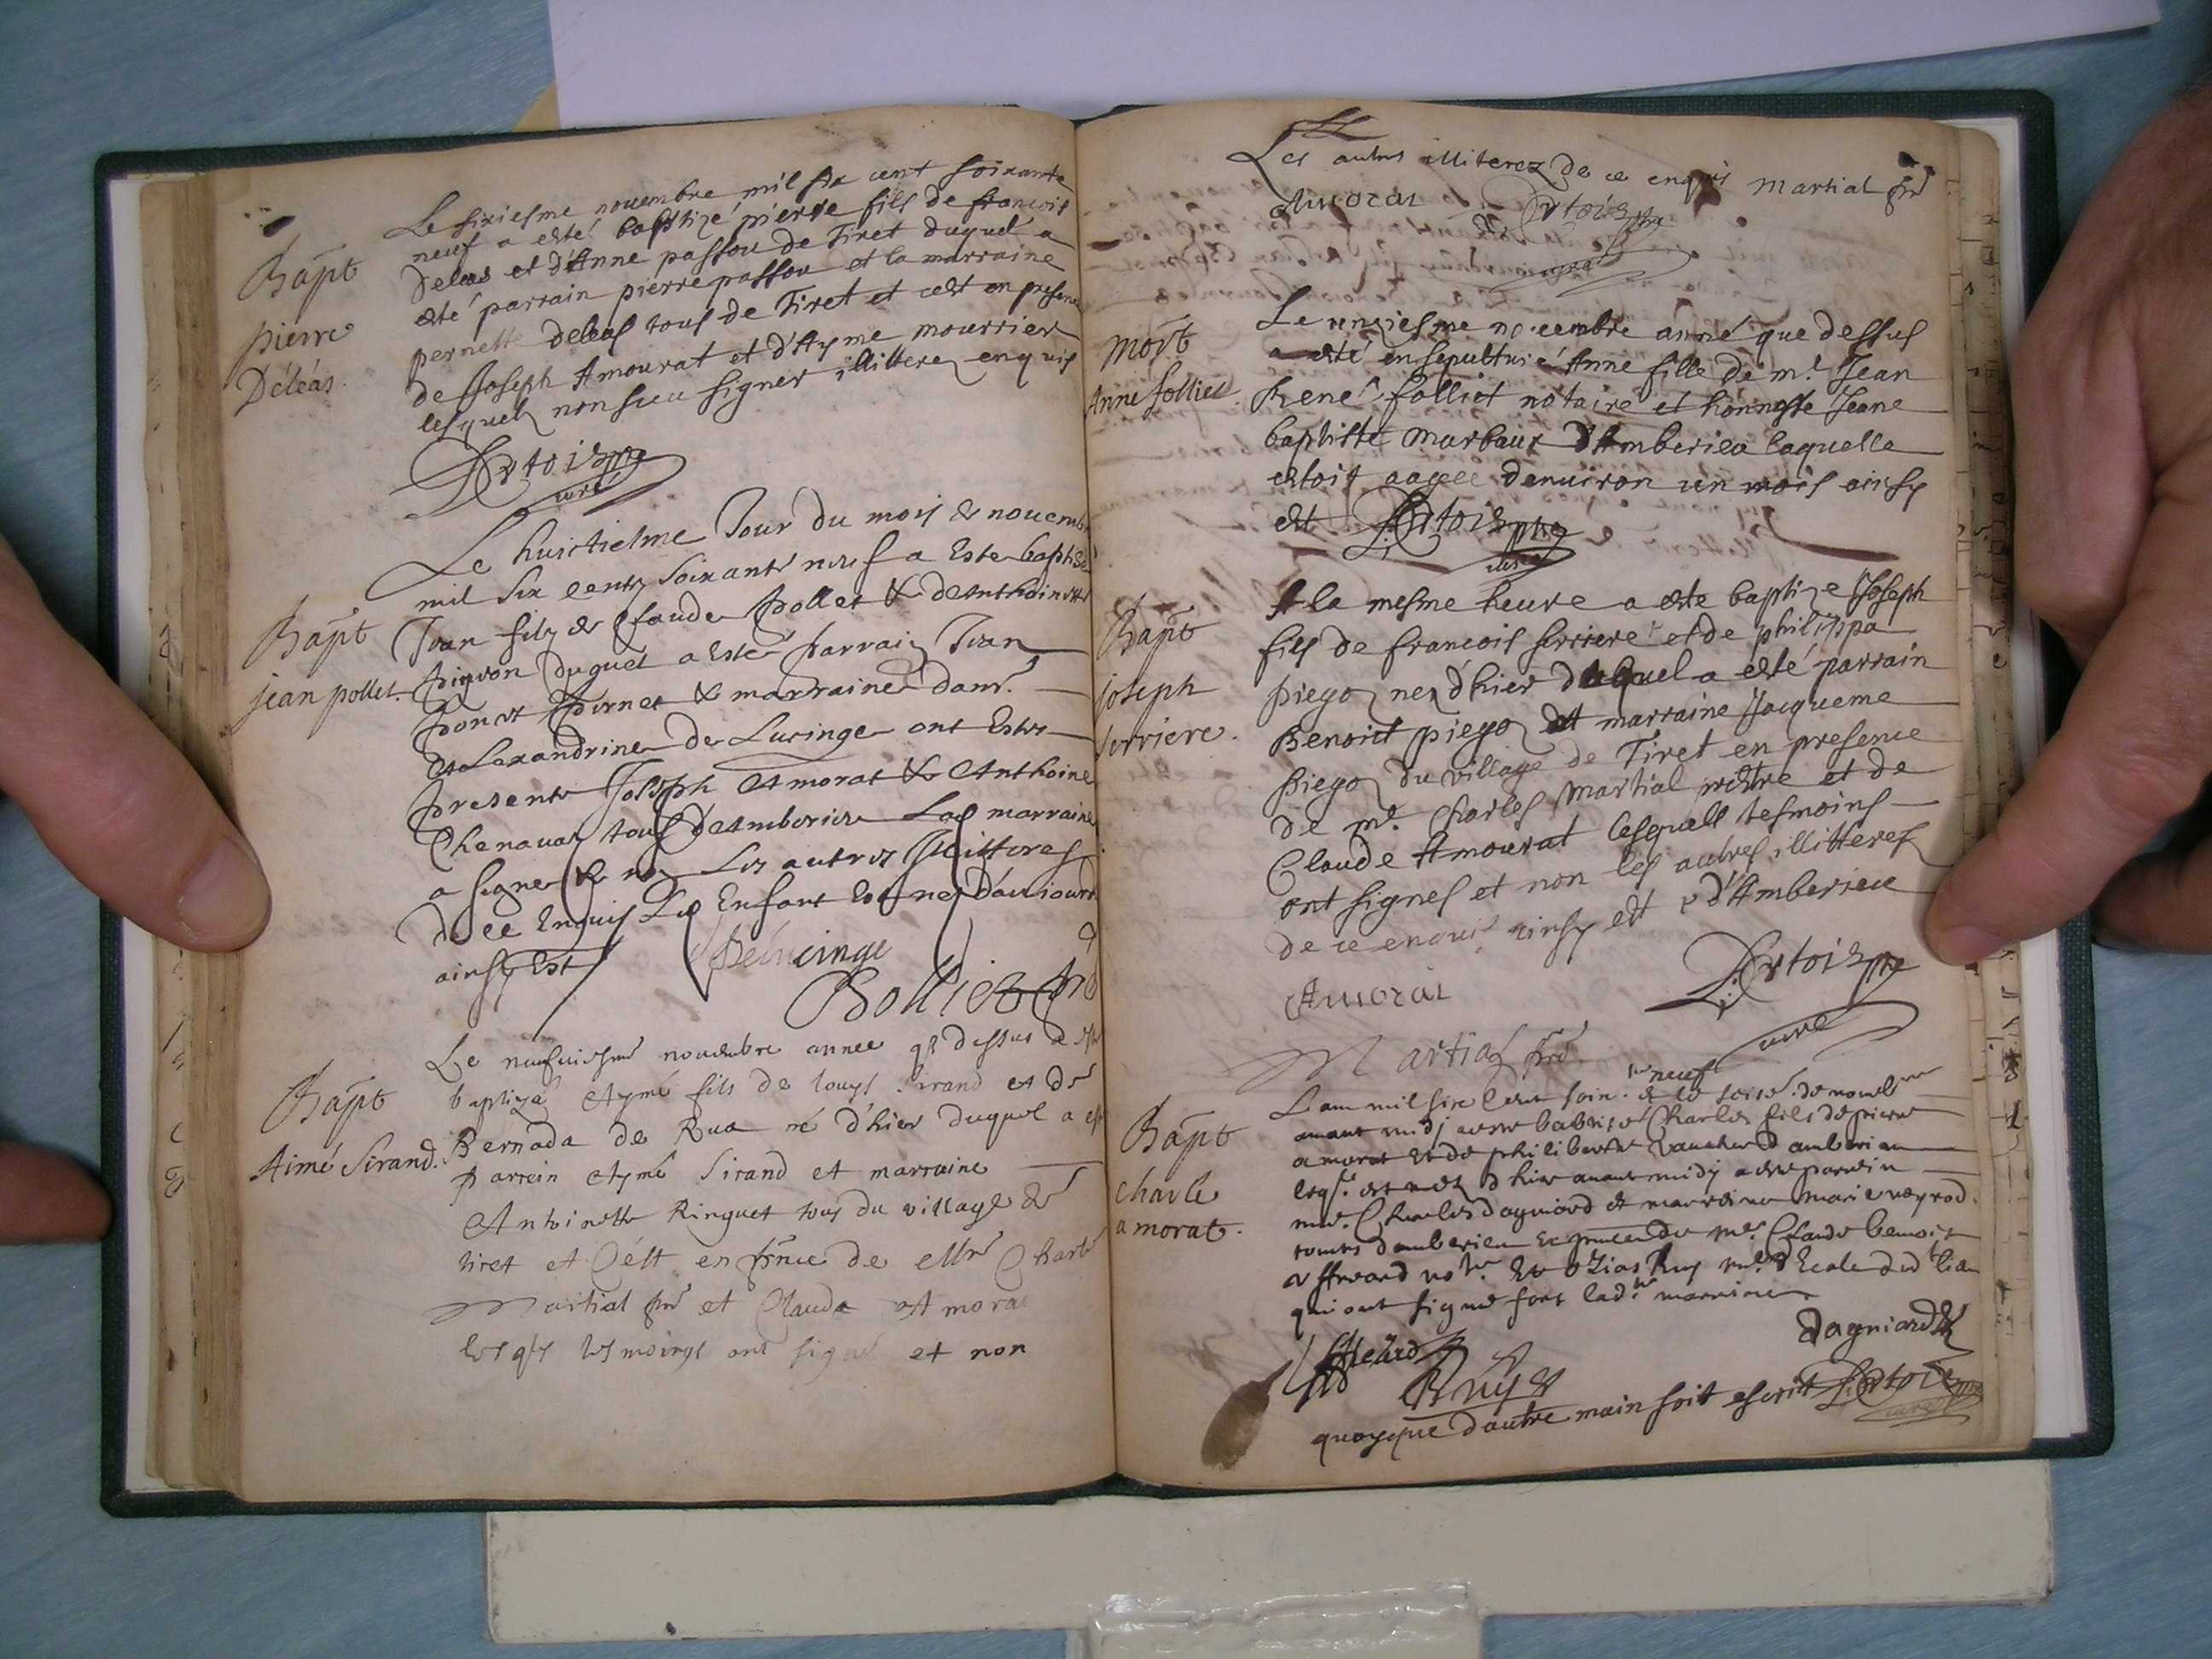 Bapt
pierre
Déléas.
Le sixiesme nouembre mil six cent soixante
neuf a esté baptizé pierre fils de francois
Deleas et d'Anne passou de Tiret duquel a
esté parrain pierre passou et la marraine
pernette deleas tous de Tiret et cest en presence
de Joseph Amourat et d'Ayme mourrier
lesquelz non sceu signer illitterez enquis
Artois pbre
curé
Bapt
jean pollet.
Le huictiesme Jour du mois de nouembre
mil Six centz Soixante neuf a Este baptise
Jean filz de Claude pollet & de Anthoinette
duquel a Esté parrain Jean
& marraine dam.
Alexandrine de Lucinge ont Estes
presents Joseph Amorat & Anthoine
Chenauaz tous d'Amberieu Las marraine
a signe & non Les autres Illitteres
de ce Enquis Le Enfant Est ne d'auiourd
ainsy Est
Delucinge
Bapt
Aimé Sirand.
Le neufuiesme nouembre annee que dessus a esté
baptizé Aymé fils de louys Sirand et de
Bernada de Rua né d'hier duquel a esté
parrein Aymé Sirand et marraine
Antoinette Ringuet tous du village de
tiret et C'est en pñce de Charles
Martial pbre et Claude Amorat
lesqls tesmoings ont signé et non
Les autres illiterez de ce enquis Martial pbre
Amorat Artois pbre
curé
mort
Anne folliet.
Le unziesme nouembre anné que dessus
a esté ensepulturé Anne fille de m.e Jean
René folliet notaire et honneste Jeane
baptiste marbaux d'Amberieu laquelle
estoit aagee denuiron un mois ainsy
est Artois pbre
curé
Bapt
joseph
serriere.
A la mesme heure a este baptize Joseph
fils de francois serriere et de philippa
piegoz nez d'hier duquel a esté parrain
Benoict piegoz et marraine Jacqueme
piegoz du village de Tiret en presence
de m.e Charles Martial prestre et de
Claude Amourat lesquels tesmoins
ont signes et non les autres illitteres
de ce enquis ainsy est d'Amberieu
Amorat Artois pbre
curé
Martial pbre
Bapt
charle
amorat.
neuf
Lan mil six cent soix. & le seise de nouembre
auant midj a este babtisé Charles fils de pierre
amorat et de philiberte vaucher d amberieu
lequel est nez d hier auant midy a este parrein
me. Charles dagniard et marreine marie
toutes damberieu en presence de me. Claude benoist
affneard no.re Et ozias Ruy me. d Ecole dud. lieu
qui ont signe fors lad.e marreine
dagniard
Ruyet
quoyque dautre main soit escrit Artois pbre
curé